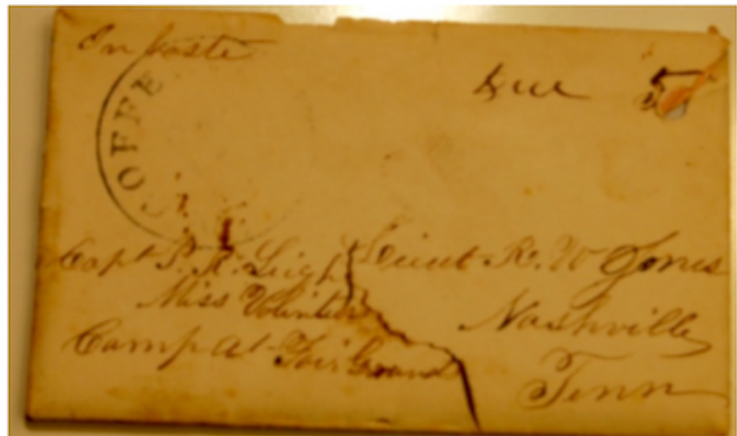 In haste
Due 5
COFFE
Capt P. R. Leigh
Miss Volinteer
Camp at Fair Ground
Lieut R. W Jones
Nashville
Tenn